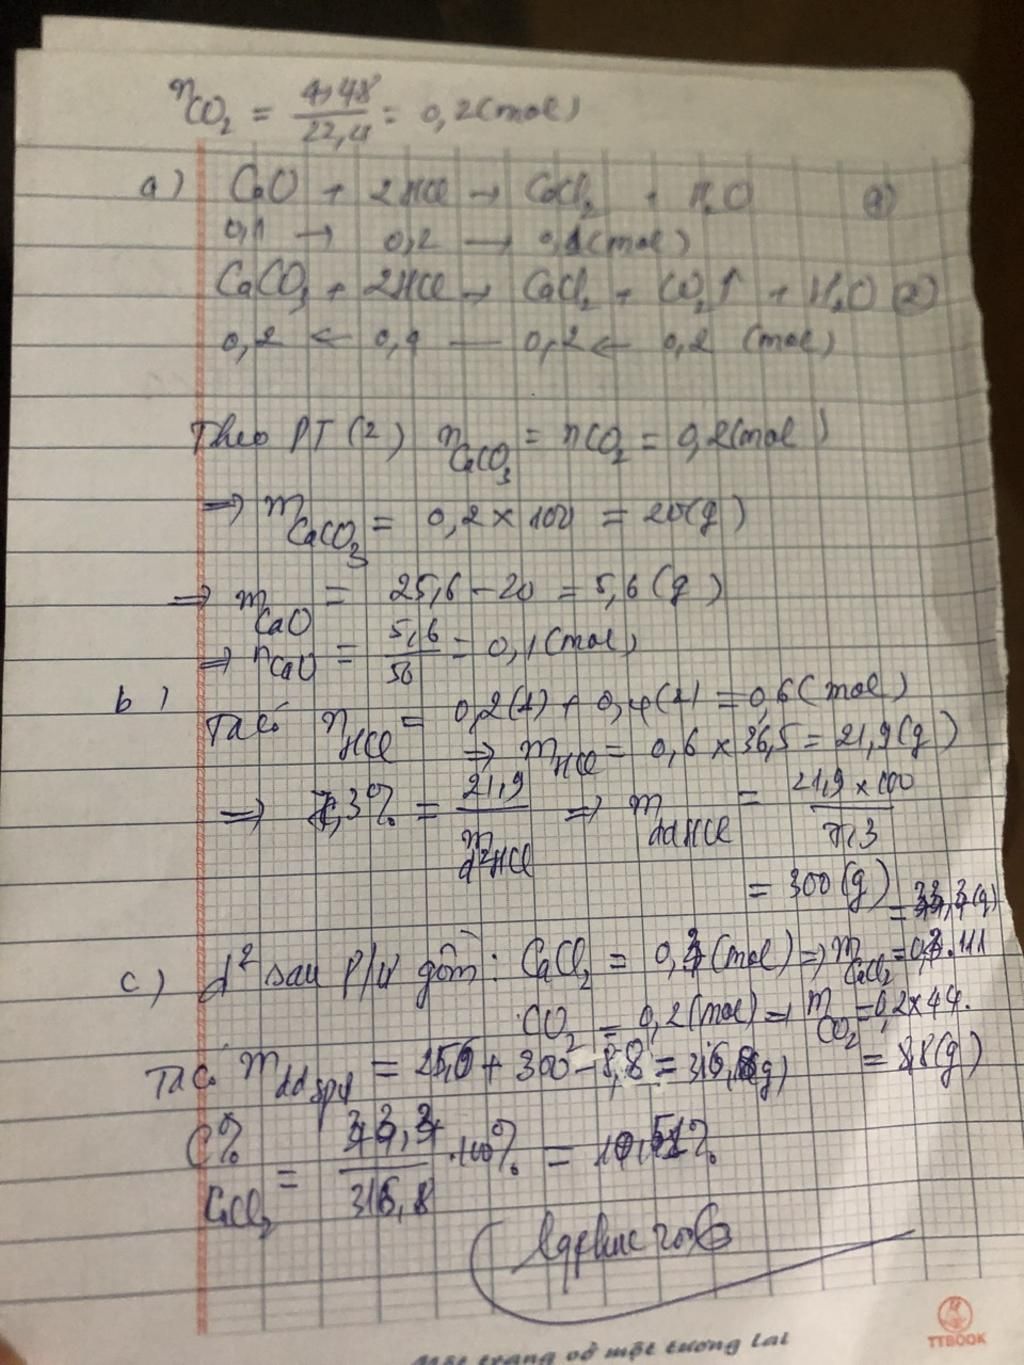 nCO₂ = 4,48/22,4 = 0,2 (mol)
a) CaO + 2HCl → CaCl₂ + H₂O
0,1 → 0,2 → 0,1 (mol)
CaCO₃ + 2HCl → CaCl₂ + CO₂↑ + H₂O (2)
0,2 ← 0,4 — 0,2 ← 0,2 (mol)
Theo PT (2) nCaCO₃ = nCO₂ = 0,2 (mol)
⇒ mCaCO₃ = 0,2 × 100 = 20 (g)
⇒ mCaO = 25,6 – 20 = 5,6 (g)
⇒ nCaO = 5,6/56 = 0,1 (mol)
b)
Ta có nHCl = 0,2(1) + 0,4(2) = 0,6 (mol)
⇒ mHCl = 0,6 × 36,5 = 21,9 (g)
⇒ 7,3% = 21,9/m d²HCl ⇒ m ddHCl = 21,9 × 100/7,3
= 300 (g)
= 33,3 (g)
c) d² sau p/ư gồm: CaCl₂ = 0,3 (mol) ⇒ mCaCl₂ = 0,3.111
CO₂ = 0,2 (mol) ⇒ mCO₂ = 0,2 × 44.
= 8,8 (g)
Ta có m ddspư = 25,6 + 300 – 8,8 = 316,8 (g)
C% CaCl₂ = 33,3/316,8 .100% = 10,51%
Một trang vở một tương lai
TTBOOK